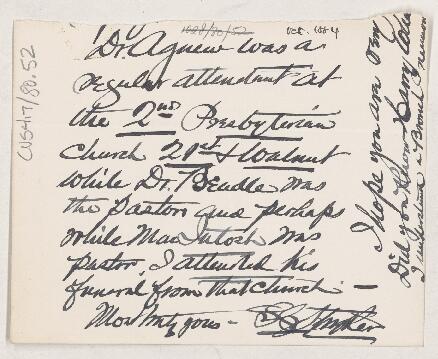 Oct. 1884
Dr. Agnew was a
regular attendant at
the 2nd Presbyterian
Church 21st & Walnut
while Dr. Beadle was
the Pastor and perhaps
while MacIntosh was
pastor. I attended his
funeral from that church —
Most truly yours —
I hope you are very
Did you know Barry
I understand